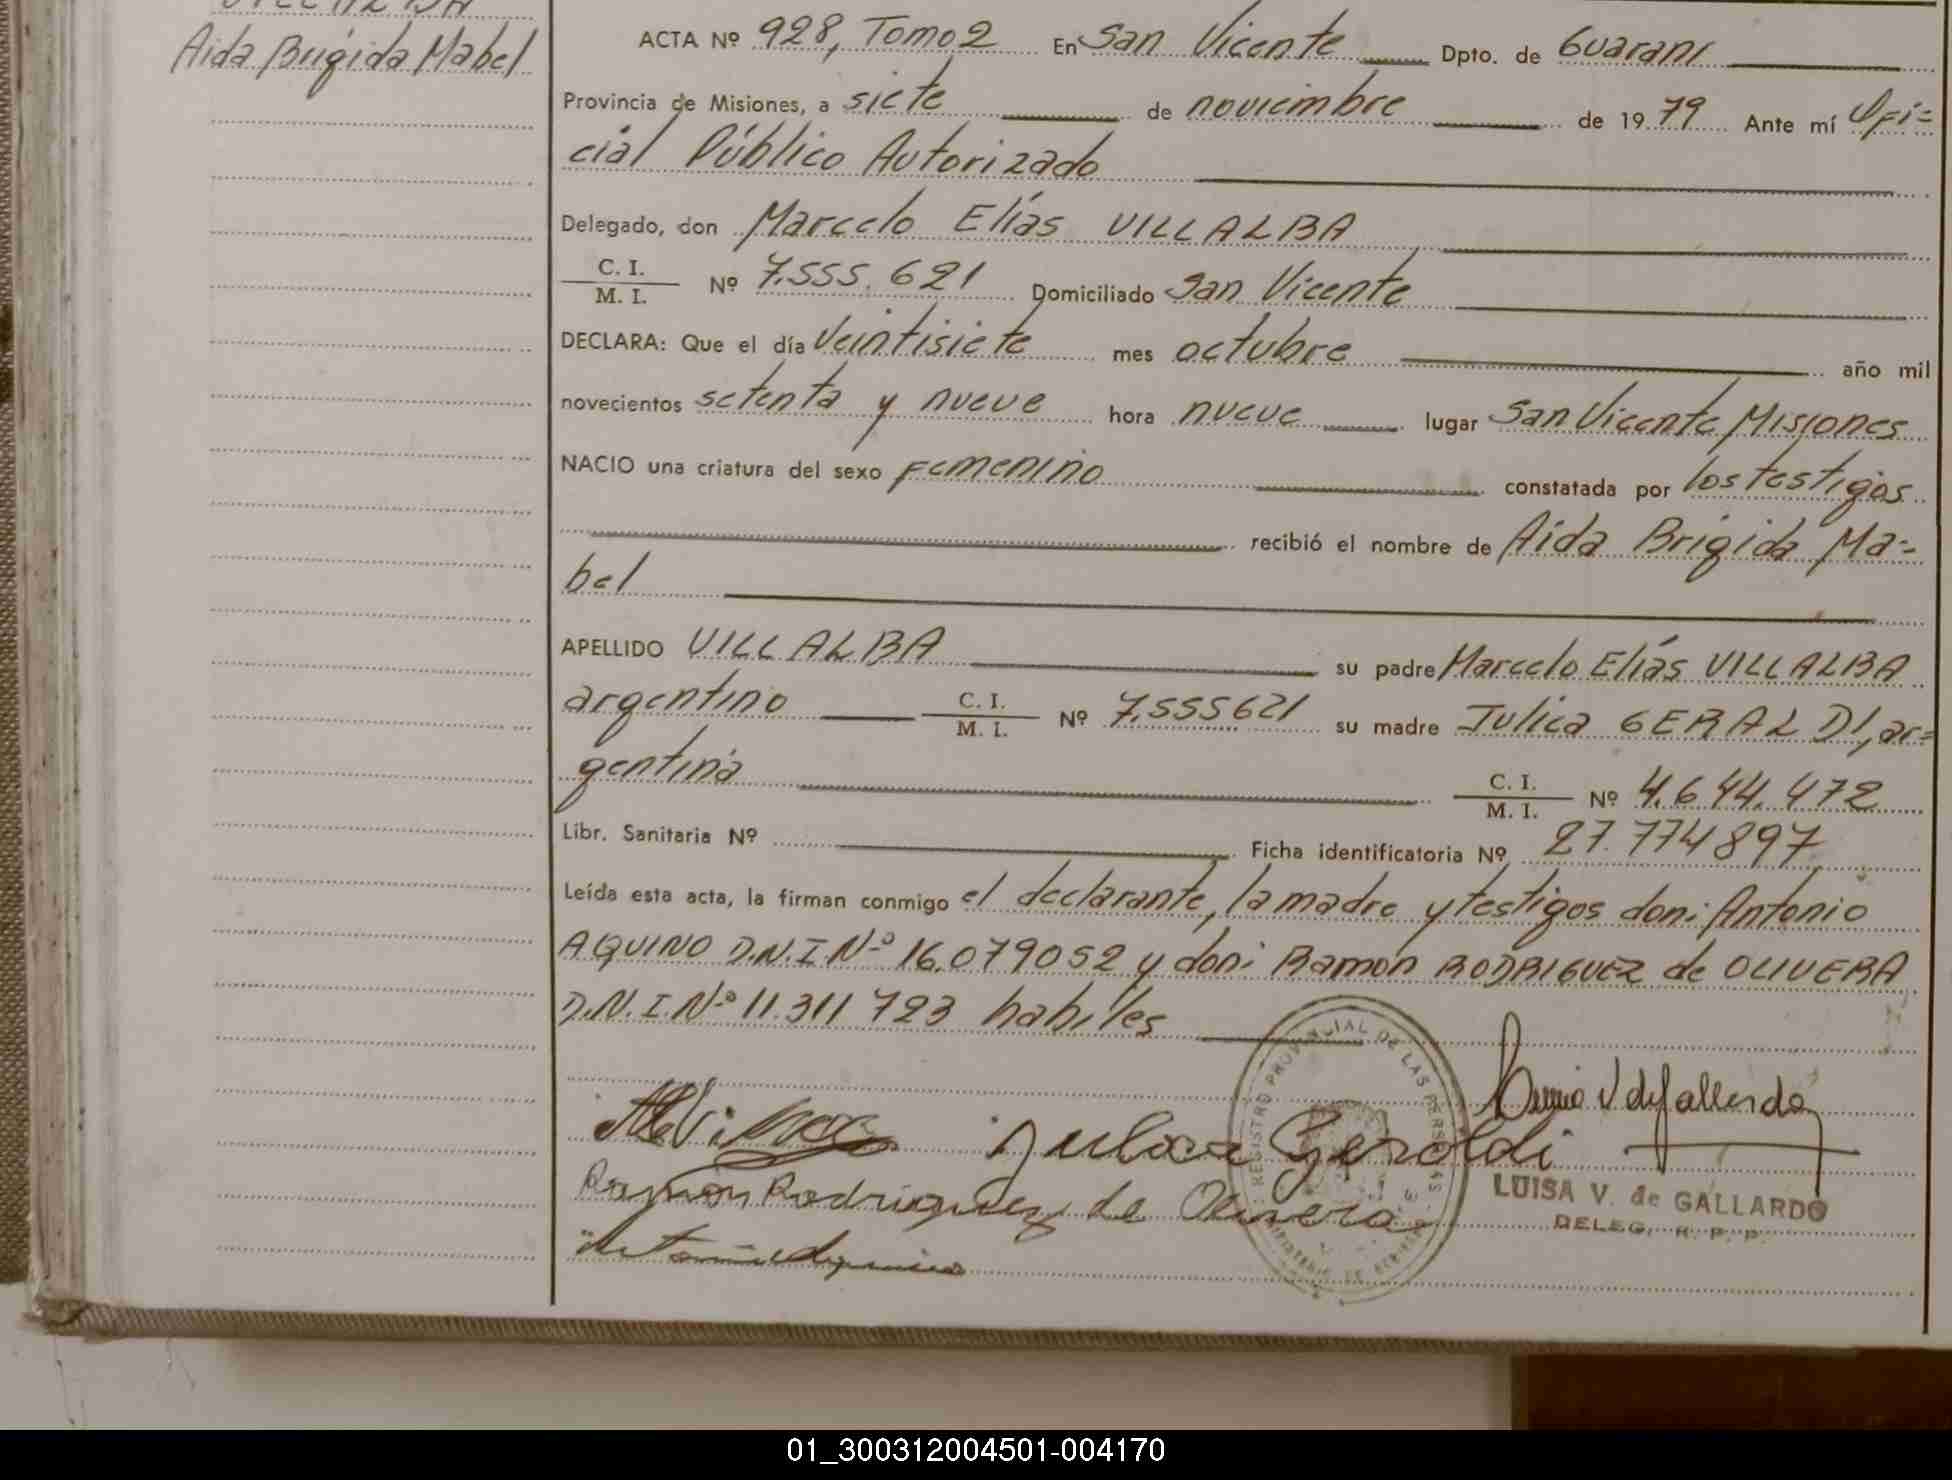 VILLALBA
Aida Brígida Mabel
ACTA Nº 928, Tomo 2 En San Vicente Dpto. de Guaraní
Provincia de Misiones, a siete de noviembre de 1979 Ante mí Ofi=
cial Público Autorizado
Delegado, don Marcelo Elías VILLALBA
C. I.
M. I. Nº 7.555.621 Domiciliado San Vicente
DECLARA: Que el día Veintisiete mes octubre año mil
novecientos setenta y nueve hora nueve lugar San Vicente Misiones
NACIO una criatura del sexo Femenino constatada por los testigos
recibió el nombre de Aida Brígida Ma=
bel
APELLIDO VILLALBA su padre Marcelo Elías VILLALBA
argentino C. I. M. I. Nº 7.555621 su madre Julica GERALDI, ar=
gentina C. I. M. I. Nº 4.644.472
Libr. Sanitaria Nº Ficha identificatoria Nº 27.774897
Leída esta acta, la firman conmigo el declarante, la madre y testigos don: Antonio
AQUINO D.N.I.Nº 16.079052 y don: Ramón RODRIGUEZ de OLIVERA
D.N.I.Nº 11.311723 habiles
REGISTRO PROVINCIAL DE LAS PERSONAS
V de Gallardo
Geroldi
Ramon Rodriguez de Olivera
LUISA V. de GALLARDO
DELEG. R. P. P.
01_300312004501-004170